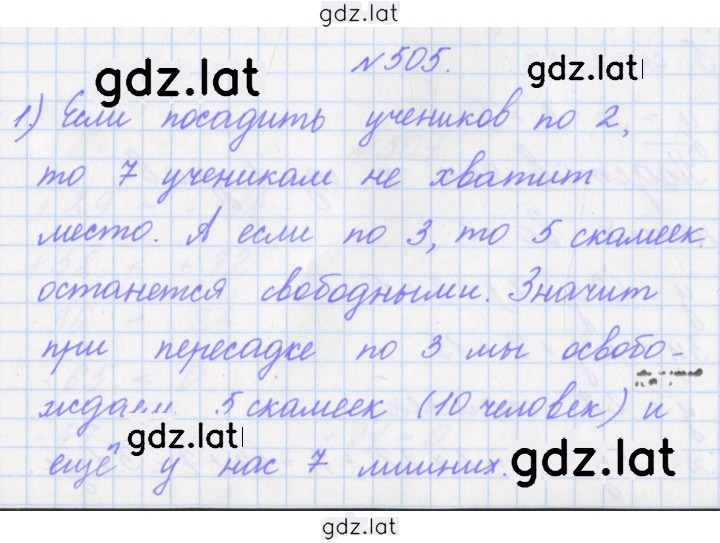 gdz.lat
№505.
gdz.lat
gdz.lat
1.) Если посадить учеников по 2,
то 7 ученикам не хватит
место. А если по 3, то 5 скамеек
останется свободными. Значит
при пересадке по 3 мы освобо-
ждаем 5 скамеек (10 человек) и
gdz.lat
ещё у нас 7 лишних.
gdz.lat
gdz.lat